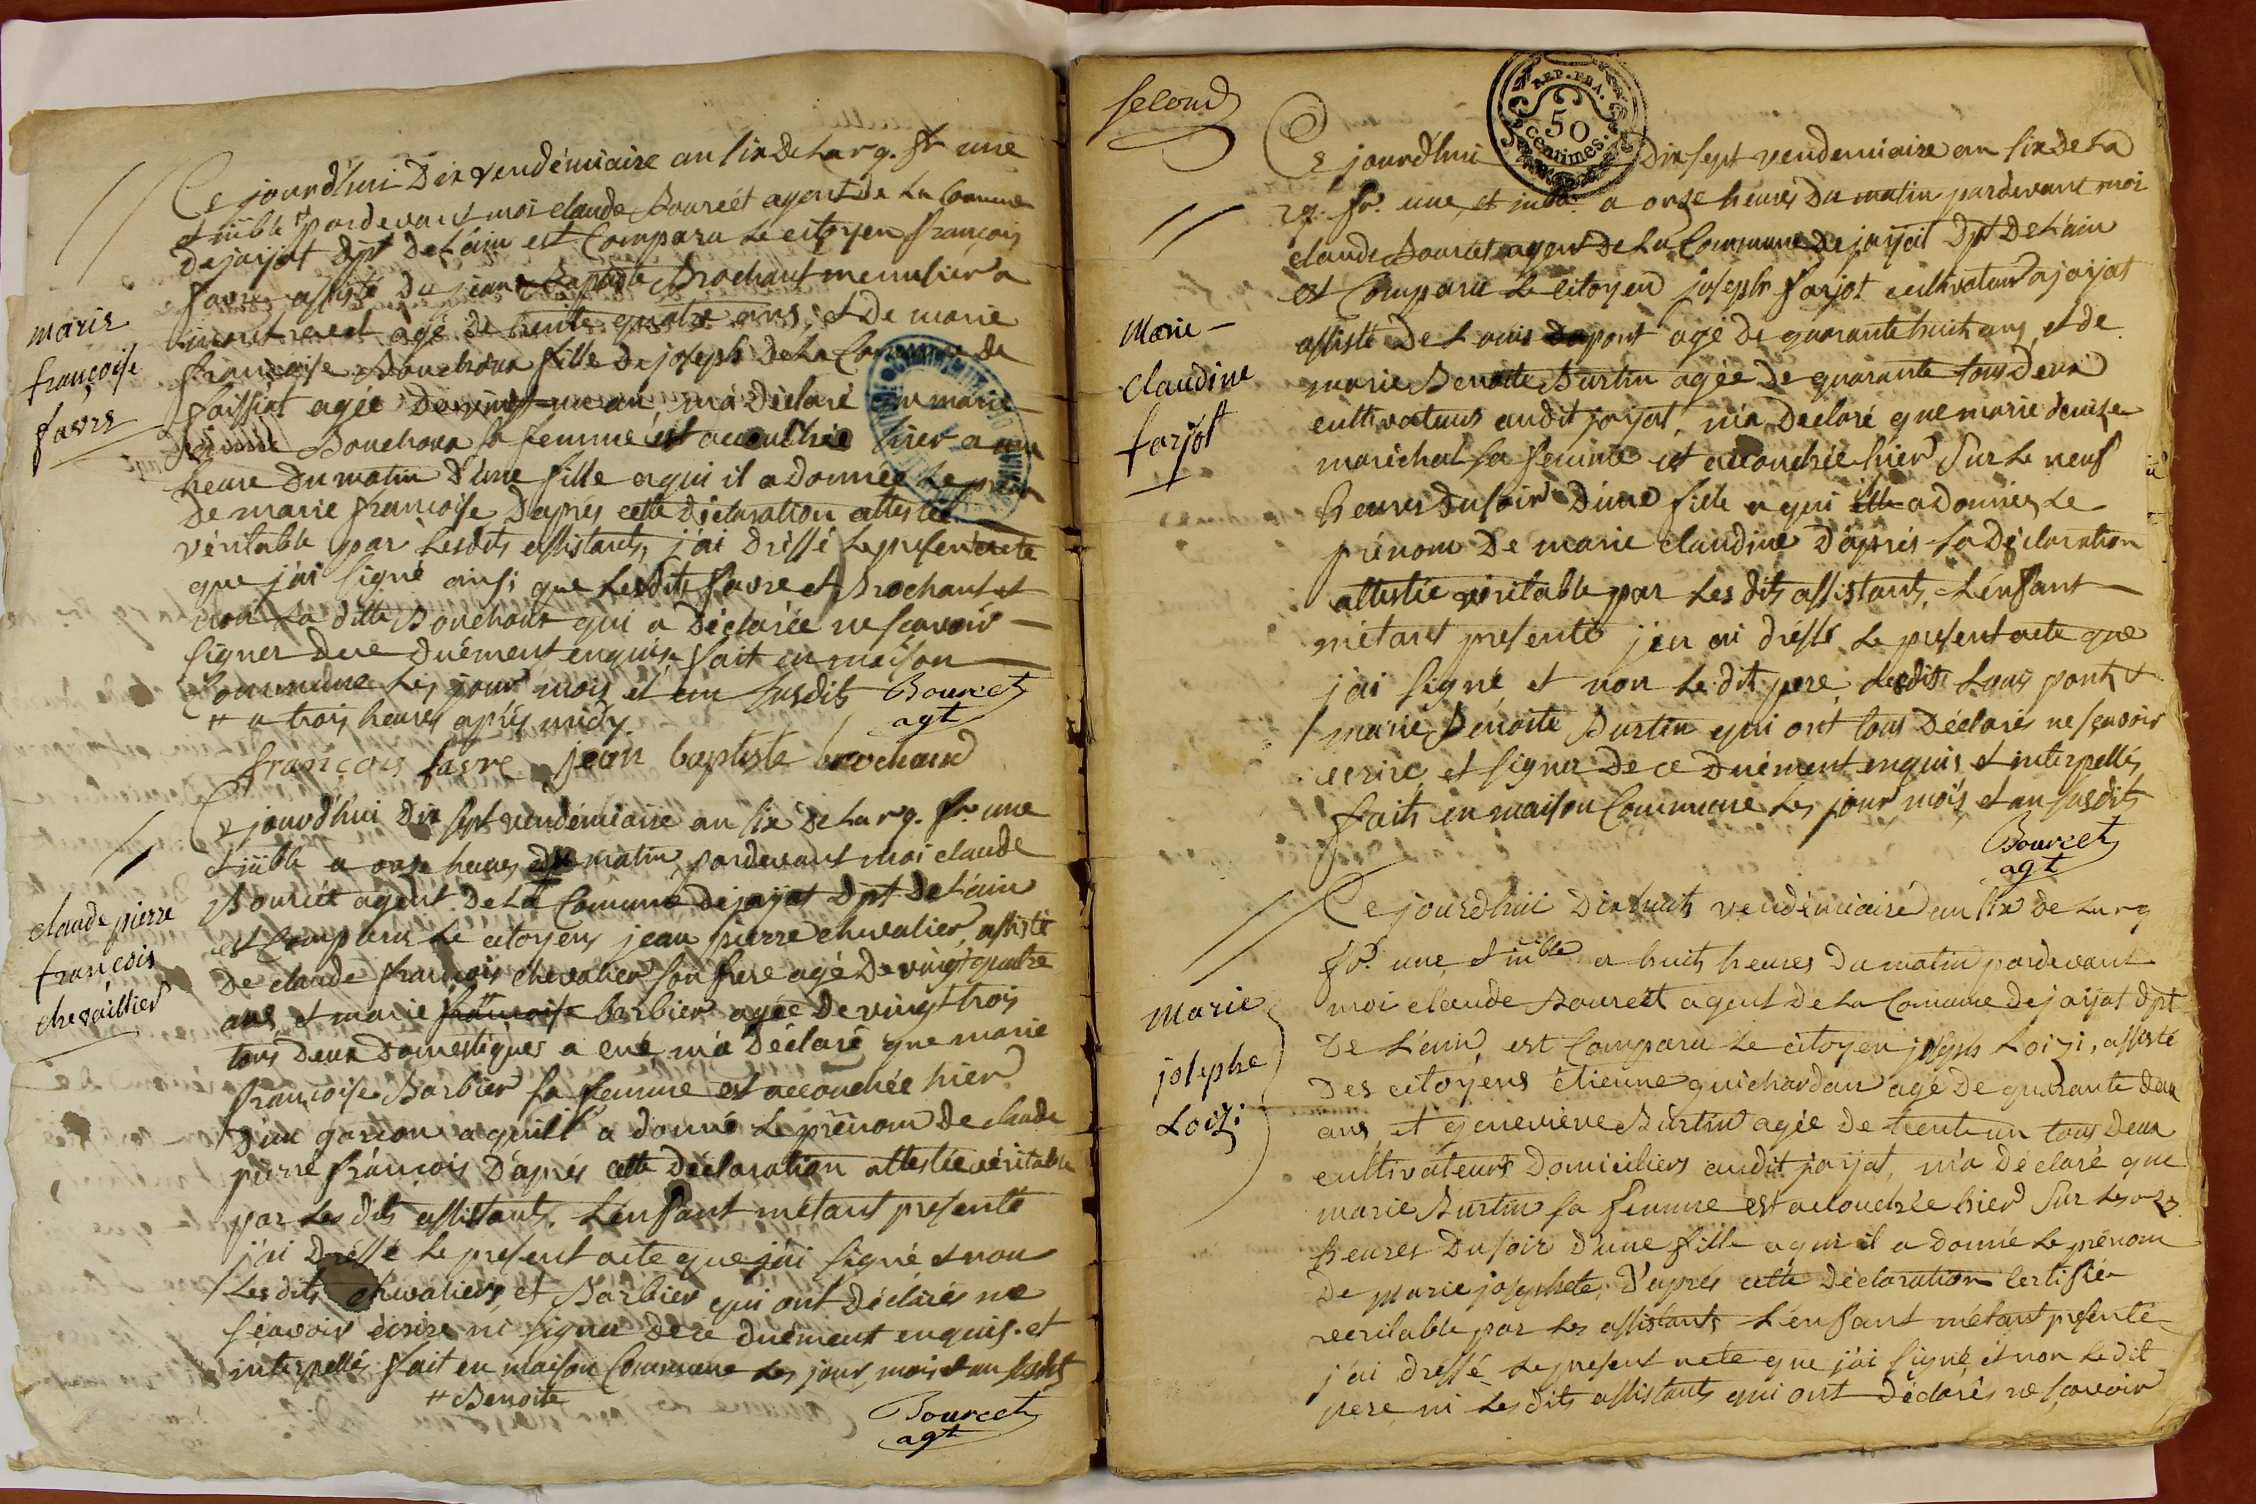 Ce jourd'hui Dix vendémiaire an six De La rq. fr une
et iĩble # pardevant moi claude Bourcet agent De La Commune
De jaijat dpt De L'ain est Comparu Le citoyen françois
favre assisté De jean Baptiste Brochant menusier a
agé De trente quatre ans, et De marie
françoise Bouchoux fille De joseph De La Commune De
foissiat agée De vingt un an, m'a Déclaré que marie
Bouchoux sa femme est accouchée hier a une
heure Du matin D'une fille a qui il a Donnée Le prénom
De marie françoise D'aprés cette Déclaration attestée
véritable par Lesdits assistants, j'ai Dréssé Le present acte
que j'ai signé ainsi que Lesdits favre et Brochant et
non La ditte Bouchoux qui a Déclarée ne sçavoir
signer De ce Duëment enquise fait en maison
Commune Les jour mois et an susdits Bourcet
# a trois heures aprés midy agt
françois favre jean baptiste brochand
marie
françoise
favre
Ce jourd'hui Dix sept vendémiaire an six De La rq. fr une
et iĩble a onze heures du matin, pardevant moi claude
Bourcét agent De La Commune De jaijat Dpt De L'ain
est Comparu Le citoyens jean pierre chevalier, assisté
De claude françois chevalier son frere agé De vingt quatre
ans, et marie françoise barbier agée De vingt trois
tous Deux Domestiques a m'a Déclaré que marie
françoise Barbier sa femme est accouchée hier
D'un garçon a qu'ill a donné Le prénom De claude
pierre françois D'aprés cette Déclaration attestée véritable
par Les dits assistants. L'enfant m'étant presenté
j'ai Dréssé Le present acte que j'ai signé et non
Les dits chevaliers et Barbier qui ont Déclarés ne
sçavoir écrire ni signer De ce Duëment enquis. et
interpellés fait en maison Commune Les jour, mois et an susdits
# Benoite
Bourcet
agt
claude pierre
françois
chevaillier
second
REP. FRA.
50
centimes.
Ce jourd'hui Dix sept vendemiaire an six De La
rq. fr. une, et indble a onze heures Du matin pardevant moi
claude Bourcet agent De La Commune De jaijat Dpt De L'ain
est Comparu Le citoyen joseph farjot cultivateur a jaijat
assisté De Louis Dupont agé De quarante huit ans, et de
marie Benoite Burtin agée De quarante tous Deux
cultivateurs audit jaijat, m'a Declaré que marie Denize
maréchal sa femme est accouchée hier sur Le neuf
heures Du soir D'une fille a qui elle a donnée Le
prénom De marie claudine D'aprés La Déclaration
attestée véritable par Les dits assistants, L'enfant
m'étant presenté j'en ai dréssé Le present acte que
j'ai signé et non Le dit pere, Lesdits Louis pont, et
marie Benoite Burtin qui ont tous Déclarés ne sçavoir
ecrire et signer De ce Duëment enquis et interpellés,
faits en maison Commune Les jour, mois, et an susdits
Bourcet
agt
marie
claudine
farjot
Ce jourd'hui Dix huit vendémiaire an six De La rq
fr. une et iĩble a huit heures Du matin pardevant
moi claude Bourcet agent De La Comune De jaijat dpt
De L'ain, est Comparu Le citoyen joseph Loizi, assisté
Des citoyens étienne guichardan agé De quarante deux
ans, et geneviève Burtin agée De trente un tous Deux
cultivateurs Domiciliers audit jaijat, m'a déclaré que
marie Burtin sa femme est accouchée hier sur Les onze
heures Du soir D'une fille a qui il a donné Le prénom
De marie josephete. D'aprés cette Déclaration certifiée
veritable par Les assistants L'enfant m'étant présenté
j'ai dressé Le present acte que j'ai signé, et non Le dit
pere ni Les dits assistants qui ont Déclarés ne sçavoir
marie
josephe
Loizi